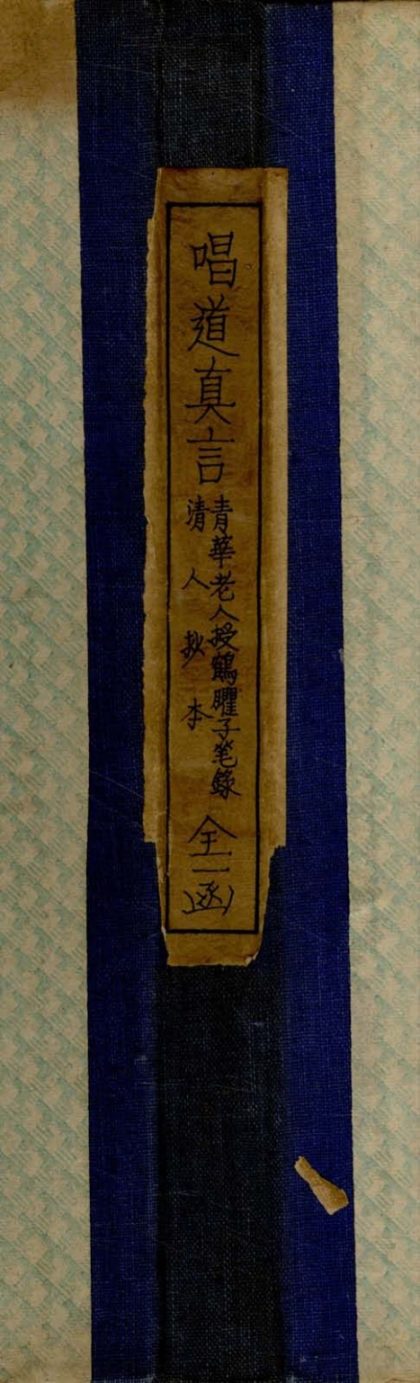 唱道真言
青華老人授鶴臞子笔錄
清人抄本
全一函